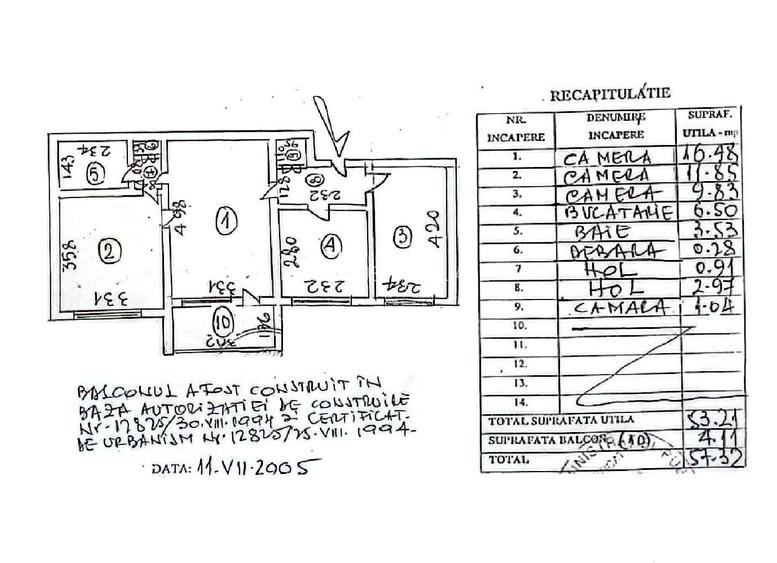 RECAPITULATIE
NR. INCAPERE DENUMIRE INCAPERE SUPRAF. UTILA - mp
1. CAMERA 16.48
2. CAMERA 11.85
3. CAMERA 9.83
4. BUCATARIE 6.50
5. BAIE 3.53
6. DEBARA 0.28
7 HOL 0.91
8. HOL 2.97
9. CAMARA 1.04
10.
11.
12.
13.
14.
TOTAL SUPRAFATA UTILA 53.21
SUPRAFATA BALCON (10) 4.11
TOTAL 57.32
234
143
5
6
7
2
358
331
498
1
331
10
302
136
9
128
8
232
280
4
232
3
420
234
BALCONUL A FOST CONSTRUIT IN
BAZA AUTORIZATIEI DE CONSTRUIRE
Nr. 12825/30.VIII.1994 CERTIFICAT
DE URBANISM Nr. 12825/25.VIII.1994
DATA: 11-VII-2005